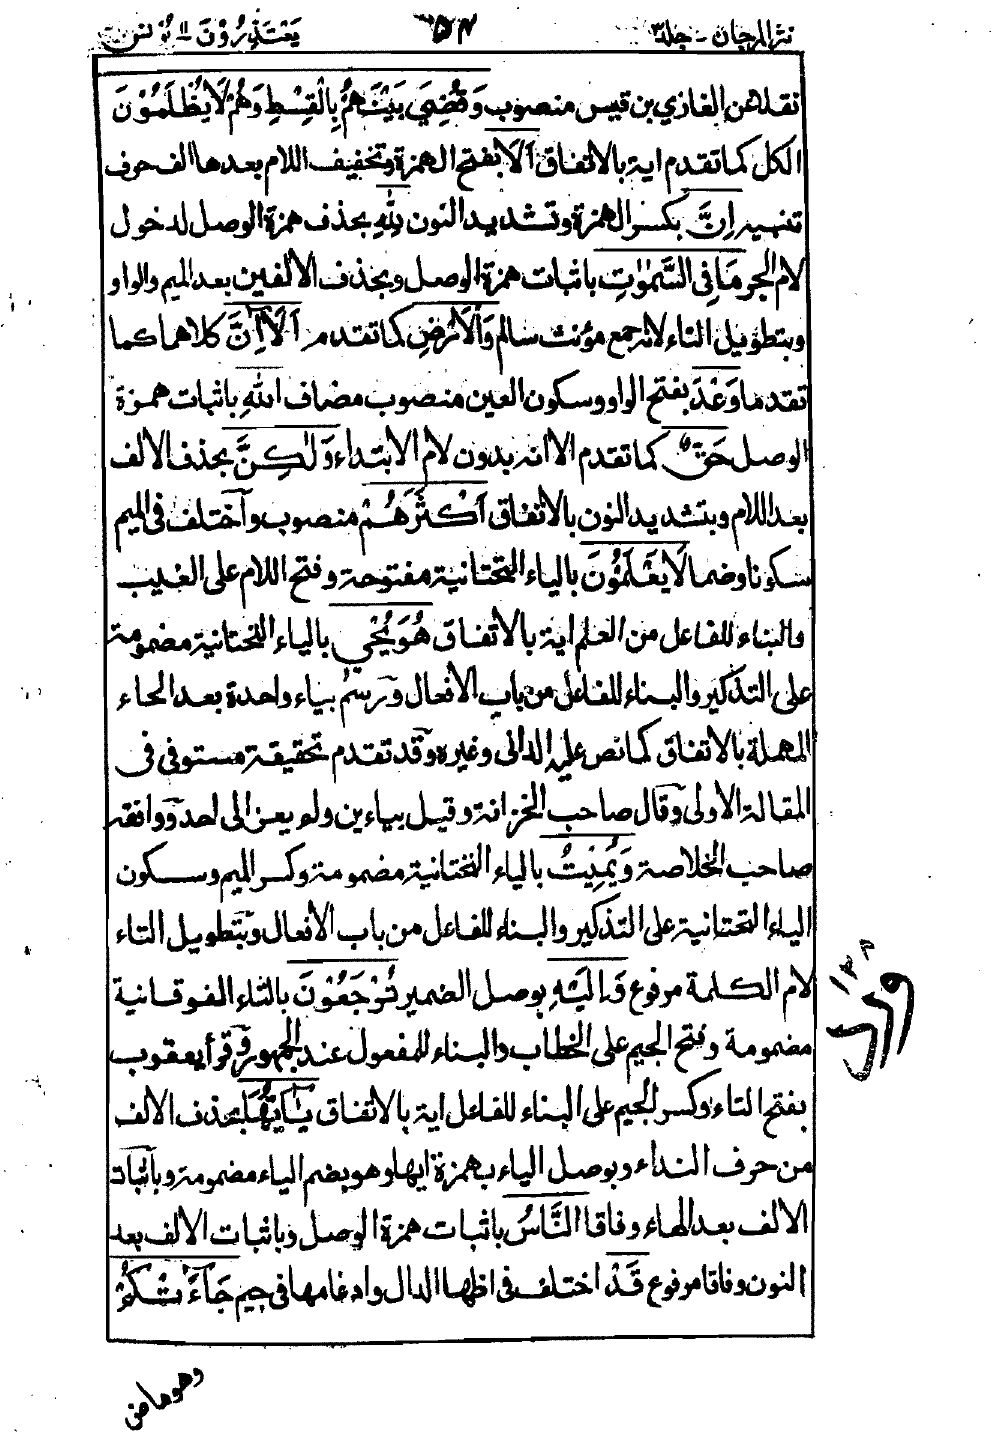 نثر المرجان - جلد ٣ ٥٤ يَعْتَذِرُوْنَ ١١ يُوْنس
نقلا عن الغازي بن قيس منصوب وَقُضِيَ بَيْنَهُمْ بِالْقِسْطِ وَهُمْ لَا يُظْلَمُوْنَ
الكل كما تقدم اية بالاتفاق اَلَا بفتح الهمزة وتخفيف اللام بعدها الف حرف
تنبيه اِنَّ بكسر الهمزة وتشديد النون لِلّٰهِ بحذف همزة الوصل لدخول
لام الجر مَا فِى السَّمٰوٰتِ باثبات همزة الوصل وبحذف الالفين بعد الميم والواو
وبتطويل التاء لانه جمع مؤنث سالم وَالْاَرْضِ كما تقدم اَلَا اِنَّ كلاهما كما
تقدما وَعْدَ بفتح الواو وسكون العين منصوب مضاف اللّٰهِ باثبات همزة
الوصل حَقٌّ كما تقدم الا انه بدون لام الابتداء وَلٰكِنَّ بحذف الالف
بعد اللام وبتشديد النون بالاتفاق اَكْثَرَهُمْ منصوب واختلف فى الميم
سكونا وضما لَا يَعْلَمُوْنَ بالياء التحتانية مفتوحة وفتح اللام على الغيب
والبناء للفاعل من العلم اية بالاتفاق هُوَ يُحْيٖ بالياء التحتانية مضمومة
على التذكير والبناء للفاعل من باب الافعال ورسم بياء واحدة بعد الحاء
المهملة بالاتفاق كما نص عليه الدانى وغيره وقد تقدم تحقيقه مستوفى فى
المقالة الاولى وقال صاحب الخزانة وقيل بياءين ولم يعز الى احد ووافقه
صاحب الخلاصة وَيُمِيْتُ بالياء التحتانية مضمومة وكسر الميم وسكون
الياء التحتانية على التذكير والبناء للفاعل من باب الافعال وبتطويل التاء
لام الكلمة مرفوع وَاِلَيْهِ بوصل الضمير تُرْجَعُوْنَ بالتاء الفوقانية
مضمومة وفتح الجيم على الخطاب والبناء للمفعول عند الجمهور وقرأ يعقوب
بفتح التاء وكسر الجيم على البناء للفاعل اية بالاتفاق يٰاَيُّهَا بحذف الالف
من حرف النداء وبوصل الياء بهمزة ايها وهو بضم الياء مضمومة وباثبات
الالف بعد الهاء وفاقا النَّاسُ باثبات همزة الوصل وباثبات الالف بعد
النون وفاقا مرفوع قَدْ اختلف فى اظهار الدال وادغامها فى جيم جَاءَتْكُمْ
وهو ماض